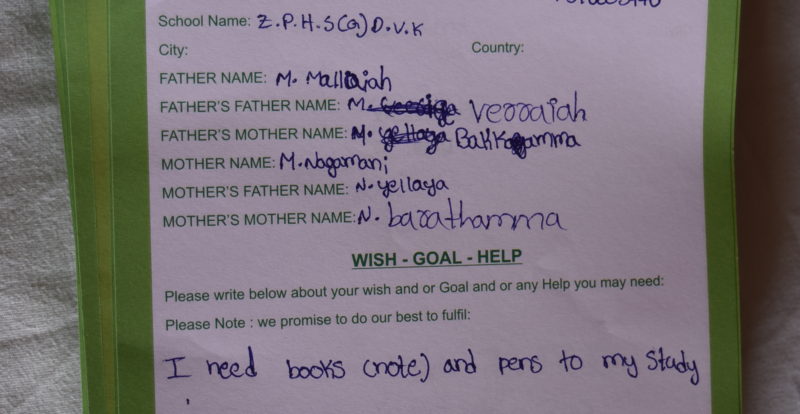 School Name: Z.P.H.S(G) D.V.K
City: Country:
FATHER NAME: M. Mallaiah
FATHER'S FATHER NAME: M. Verraiah
FATHER'S MOTHER NAME: M. Bakkamma
MOTHER NAME: M. Nagamani
MOTHER'S FATHER NAME: N. yellaya
MOTHER'S MOTHER NAME: N. barathamma
WISH - GOAL - HELP
Please write below about your wish and or Goal and or any Help you may need:
Please Note : we promise to do our best to fulfil:
I need books (note) and pens to my study